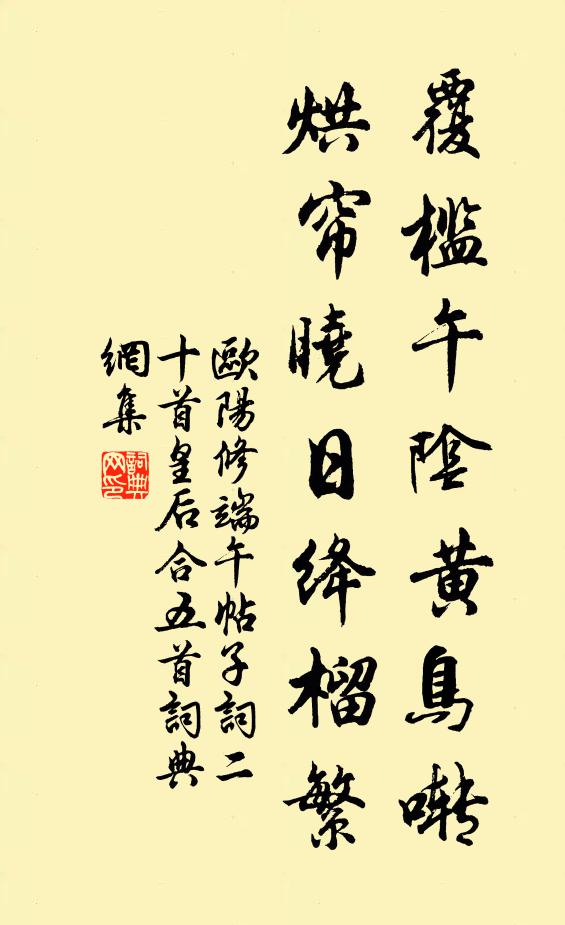 覆檻午陰黄鳥囀
烘帘曉日绛榴繁
歐陽修端午帖子詞二
十首皇后合五首詞典
網集
詞典网印